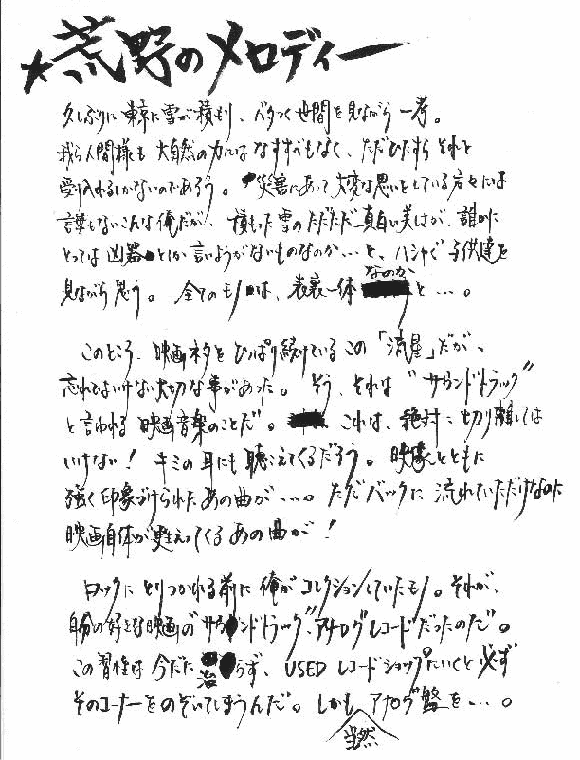 ★荒野のメロディー
久しぶりに東京に雪が積もり、バタつく世間を見ながら一考。
我ら人間様も大自然の力にはなすすべもなく、ただひたすらそれを
受け入れるしかないのであろう。災害にあって大変な思いをしている方々には
言葉もないこんな俺だが、積もった雪のただただ真白い美しさが、誰かに
とっては凶器としか言いようがないものなのか…と、ハシャぐ子供達を
見ながら思う。全てのモノは、表裏一体なのかと…。
このところ、映画ネタをひっぱり続けているこの「流星」だが、
忘れちゃいけない大切な事があった。そう、それは“サウンドトラック”
と言われる映画音楽のことだ。これは、絶対に切り離しては
いけない！キミの耳にも聴こえてくるだろう。映像とともに
強く印象づけられたあの曲が…。ただバックに流れていただけなのに
映画自体が甦えってくるあの曲が！
ロックにとりつかれる前に俺がコレクションしていたモノ。それが、
自分の好きな映画の“サウンドトラック”アナログレコードだったのだ。
この習性は今だに治らず、USEDレコードショップにいくと必ず
そのコーナーをのぞいてしまうんだ。しかも当然アナログ盤を…。